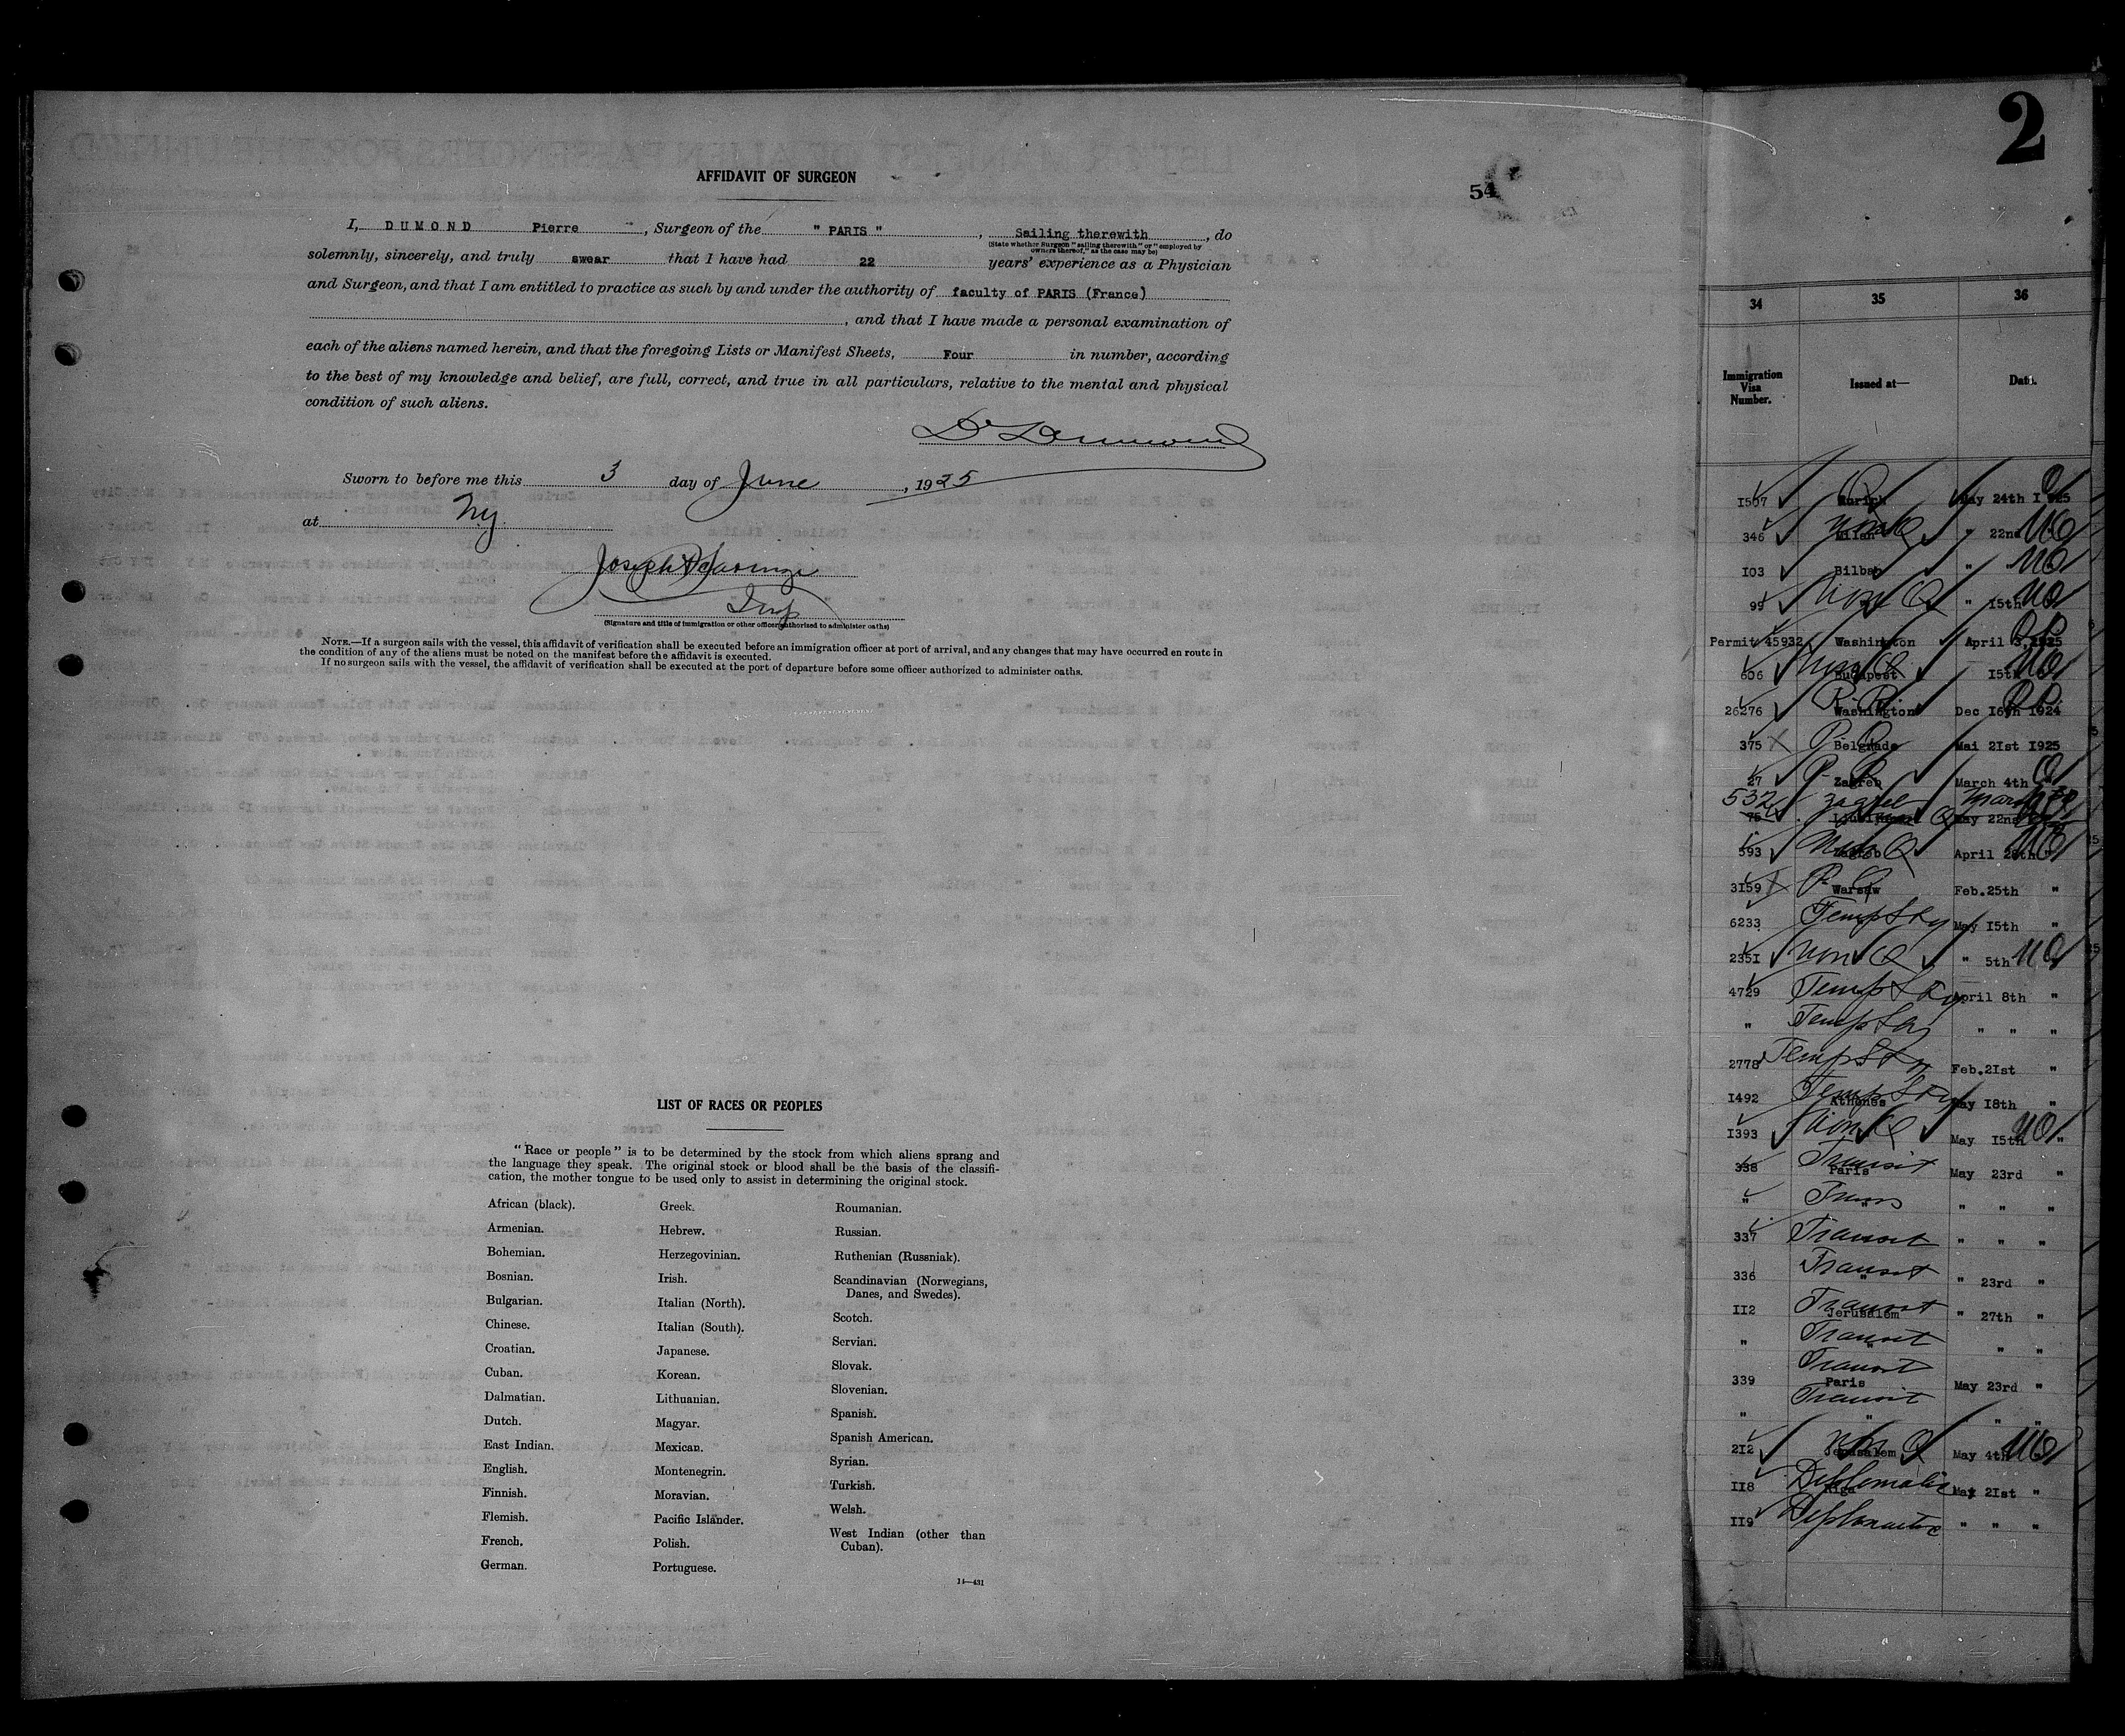 AFFIDAVIT OF SURGEON
54
I, DUMOND Pierre , Surgeon of the " PARIS " , Sailing therewith , do
(State whether Surgeon "sailing therewith" or "employed by
owners thereof," as the case may be)
solemnly, sincerely, and truly swear that I have had 22 years' experience as a Physician
and Surgeon, and that I am entitled to practice as such by and under the authority of faculty of PARIS (France)
, and that I have made a personal examination of
each of the aliens named herein, and that the foregoing Lists or Manifest Sheets, Four in number, according
to the best of my knowledge and belief, are full, correct, and true in all particulars, relative to the mental and physical
condition of such aliens.
Sworn to before me this 3 day of June , 1925
at N.y.
Joseph
Insp
(Signature and title of immigration or other officer authorized to administer oaths)
NOTE.—If a surgeon sails with the vessel, this affidavit of verification shall be executed before an immigration officer at port of arrival, and any changes that may have occurred en route in
the condition of any of the aliens must be noted on the manifest before the affidavit is executed.
If no surgeon sails with the vessel, the affidavit of verification shall be executed at the port of departure before some officer authorized to administer oaths.
LIST OF RACES OR PEOPLES
"Race or people" is to be determined by the stock from which aliens sprang and
the language they speak. The original stock or blood shall be the basis of the classifi-
cation, the mother tongue to be used only to assist in determining the original stock.
African (black).
Armenian.
Bohemian.
Bosnian.
Bulgarian.
Chinese.
Croatian.
Cuban.
Dalmatian.
Dutch.
East Indian.
English.
Finnish.
Flemish.
French.
German.
Greek.
Hebrew.
Herzegovinian.
Irish.
Italian (North).
Italian (South).
Japanese.
Korean.
Lithuanian.
Magyar.
Mexican.
Montenegrin.
Moravian.
Pacific Islander.
Polish.
Portuguese.
Roumanian.
Russian.
Ruthenian (Russniak).
Scandinavian (Norwegians,
Danes, and Swedes).
Scotch.
Servian.
Slovak.
Slovenian.
Spanish.
Spanish American.
Syrian.
Turkish.
Welsh.
West Indian (other than
Cuban).
14—431
2
34 35 36
Immigration
Visa
Number.
Issued at—
Date.
1507 Zurich May 24th 1925
346 Non Q Milan " 22nd NQ
103 Bilbao " " NQ
99 Non Q " 15th NQ
Permit 45932 Washington April 3, 1925
606 Non Q Budapest 15th NQ
26276 Washington Dec 16th 1924
375 P Q Belgrade Mai 21st 1925
27 Zagreb March 4th
532 Zagreb
75 May 22nd
593 Non Q Zagreb April 28th NQ
3159 P Q Warsaw Feb. 25th "
6233 Temp Sty May 15th "
2351 Non Q " 5th NQ
4729 Temp Sty April 8th "
" Temp Sty " " "
2778 Temp Sty Feb. 21st "
1492 Temp Sty Athenes May 18th "
1393 Non Q May 15th NQ "
338 Transit Paris May 23rd "
" Trans " " "
337 Transit " " "
336 Transit " 23rd "
112 Transit Jerusalem " 27th "
" Transit " "
Transit
339 Paris May 23rd "
Transit
" " " "
212 Non Q Jerusalem May 4th NQ
118 Diplomatic Riga May 21st "
119 Diplomatic " " "